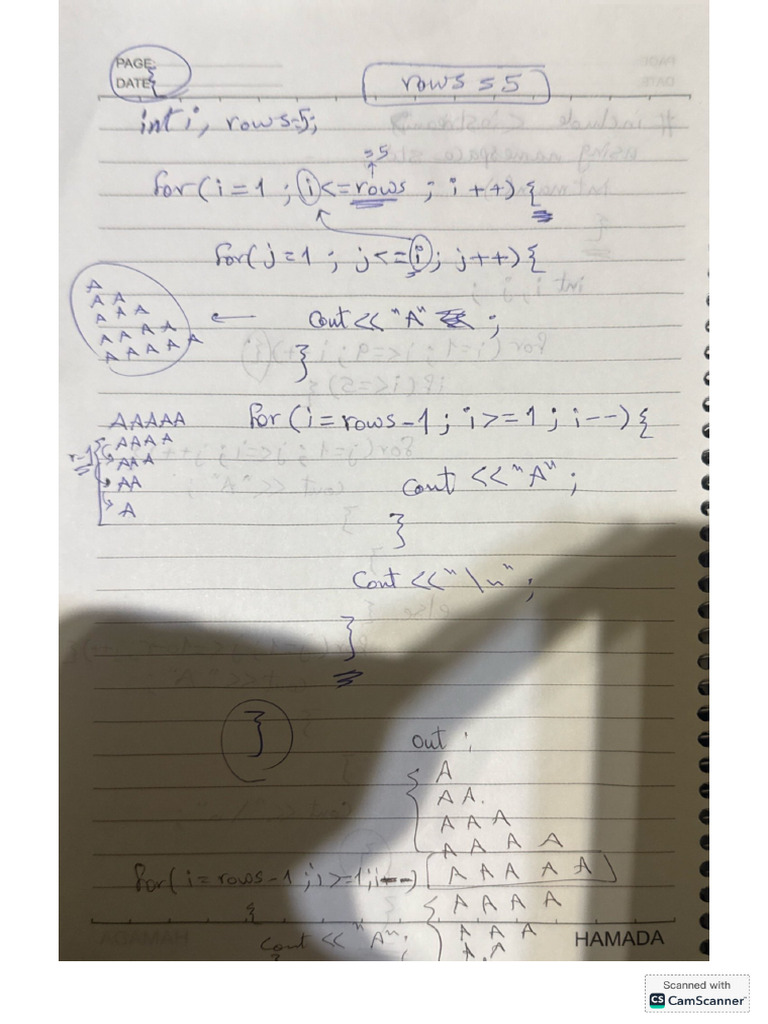 PAGE:
DATE:
{
rows = 5
int i, rows=5;
=5
for(i=1 ; i<=rows ; i++){
for(j=1 ; j<=i; j++){
A
A A
A A A
A A A A
A A A A A
← cout<<"A" ;
}
AAAAA
AAAA
AAA
AA
A
r-1
for (i=rows-1 ; i>=1 ; i--){
cout <<"A" ;
}
cout <<"\n" ;
}
}
out ;
A
A A.
A A A
A A A A
A A A A A
for(i=rows-1 ; i>=1;i--)
{
A A A A
A A A
A.A
cout << "A";
}
HAMADA
Scanned with
CS CamScanner